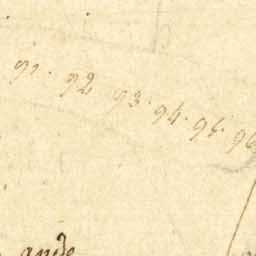 91. 92 93. 94. 95. 96
ande